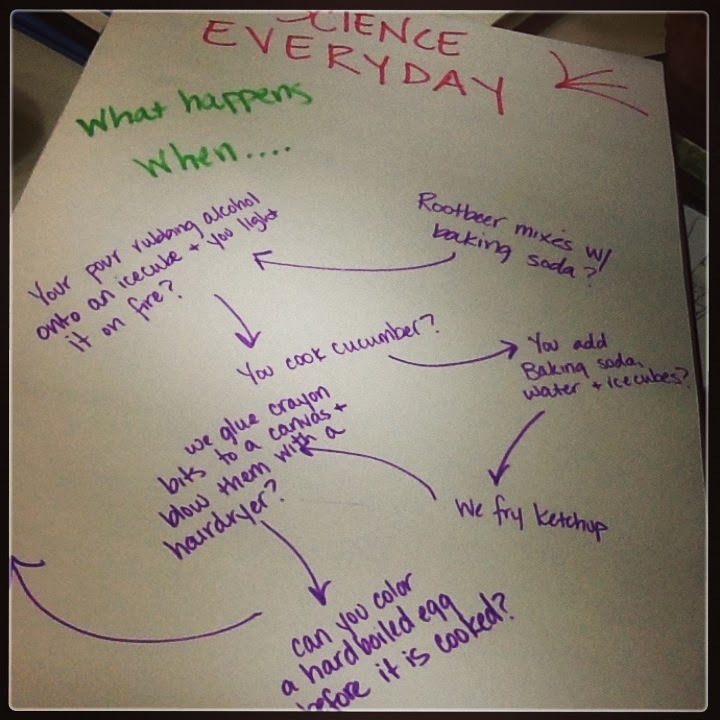 SCIENCE
EVERYDAY
What happens
When....
Rootbeer mixes w/
baking soda?
Your pour rubbing alcohol
onto an icecube + you light
it on fire?
You cook cucumber?
You add
Baking soda,
water + icecubes?
We fry Ketchup
we glue crayon
bits to a canvas +
blow them with a
hairdryer?
can you color
a hardboiled egg
before it is cooked?